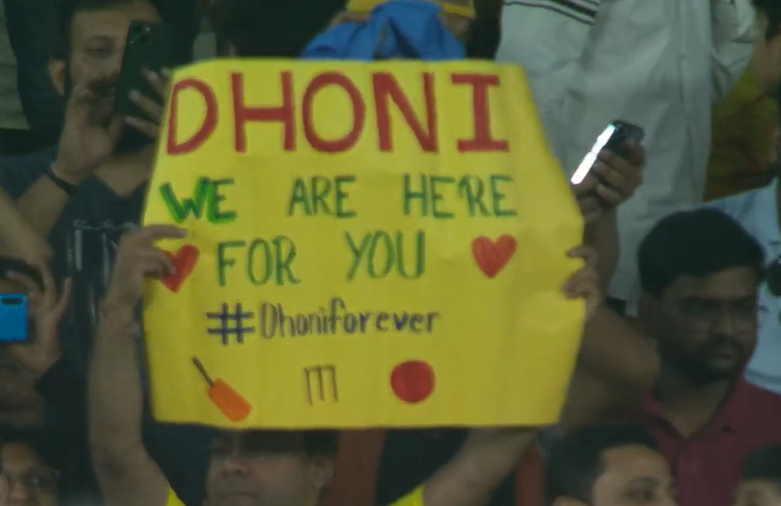 DHONI
WE ARE HERE
FOR YOU
#Dhoniforever